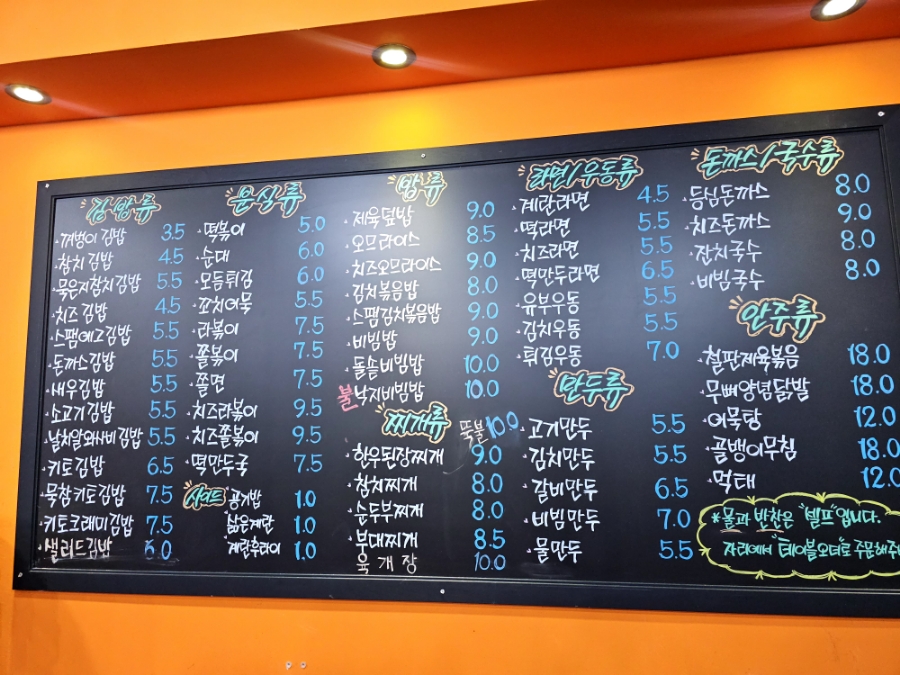 김밥류
꺼벙이 김밥 3.5
참치 김밥 4.5
묵은지참치김밥 5.5
치즈 김밥 4.5
스팸에그김밥 5.5
돈까스김밥 5.5
새우김밥 5.5
소고기 김밥 5.5
날치알와사비김밥 5.5
키토김밥 6.5
묵참키토김밥 7.5
키토크래미김밥 7.5
샐러드김밥 6.0
분식류
떡볶이 5.0
순대 6.0
모듬튀김 6.0
꼬치어묵 5.5
라볶이 7.5
쫄볶이 7.5
쫄면 7.5
치즈라볶이 9.5
치즈쫄볶이 9.5
떡만두국 7.5
사이드
공기밥 1.0
삶은계란 1.0
계란후라이 1.0
밥류
제육덮밥 9.0
오므라이스 8.5
치즈오므라이스 9.0
김치볶음밥 8.0
스팸김치볶음밥 9.0
비빔밥 9.0
돌솥비빔밥 10.0
불낙지비빔밥 10.0
찌개류
뚝불 10.0
한우된장찌개 9.0
참치찌개 8.0
순두부찌개 8.0
부대찌개 8.5
육개장 10.0
라면/우동류
계란라면 4.5
떡라면 5.5
치즈라면 5.5
떡만두라면 6.5
유부우동 5.5
김치우동 5.5
튀김우동 7.0
만두류
고기만두 5.5
김치만두 5.5
갈비만두 6.5
비빔만두 7.0
물만두 5.5
돈까스/국수류
등심돈까스 8.0
치즈돈까스 9.0
잔치국수 8.0
비빔국수 8.0
안주류
철판제육볶음 18.0
무뼈양념닭발 18.0
어묵탕 12.0
골뱅이무침 18.0
먹태 12.0
*물과 반찬은 "셀프"입니다.
자리에서 "테이블오더"로 주문해주